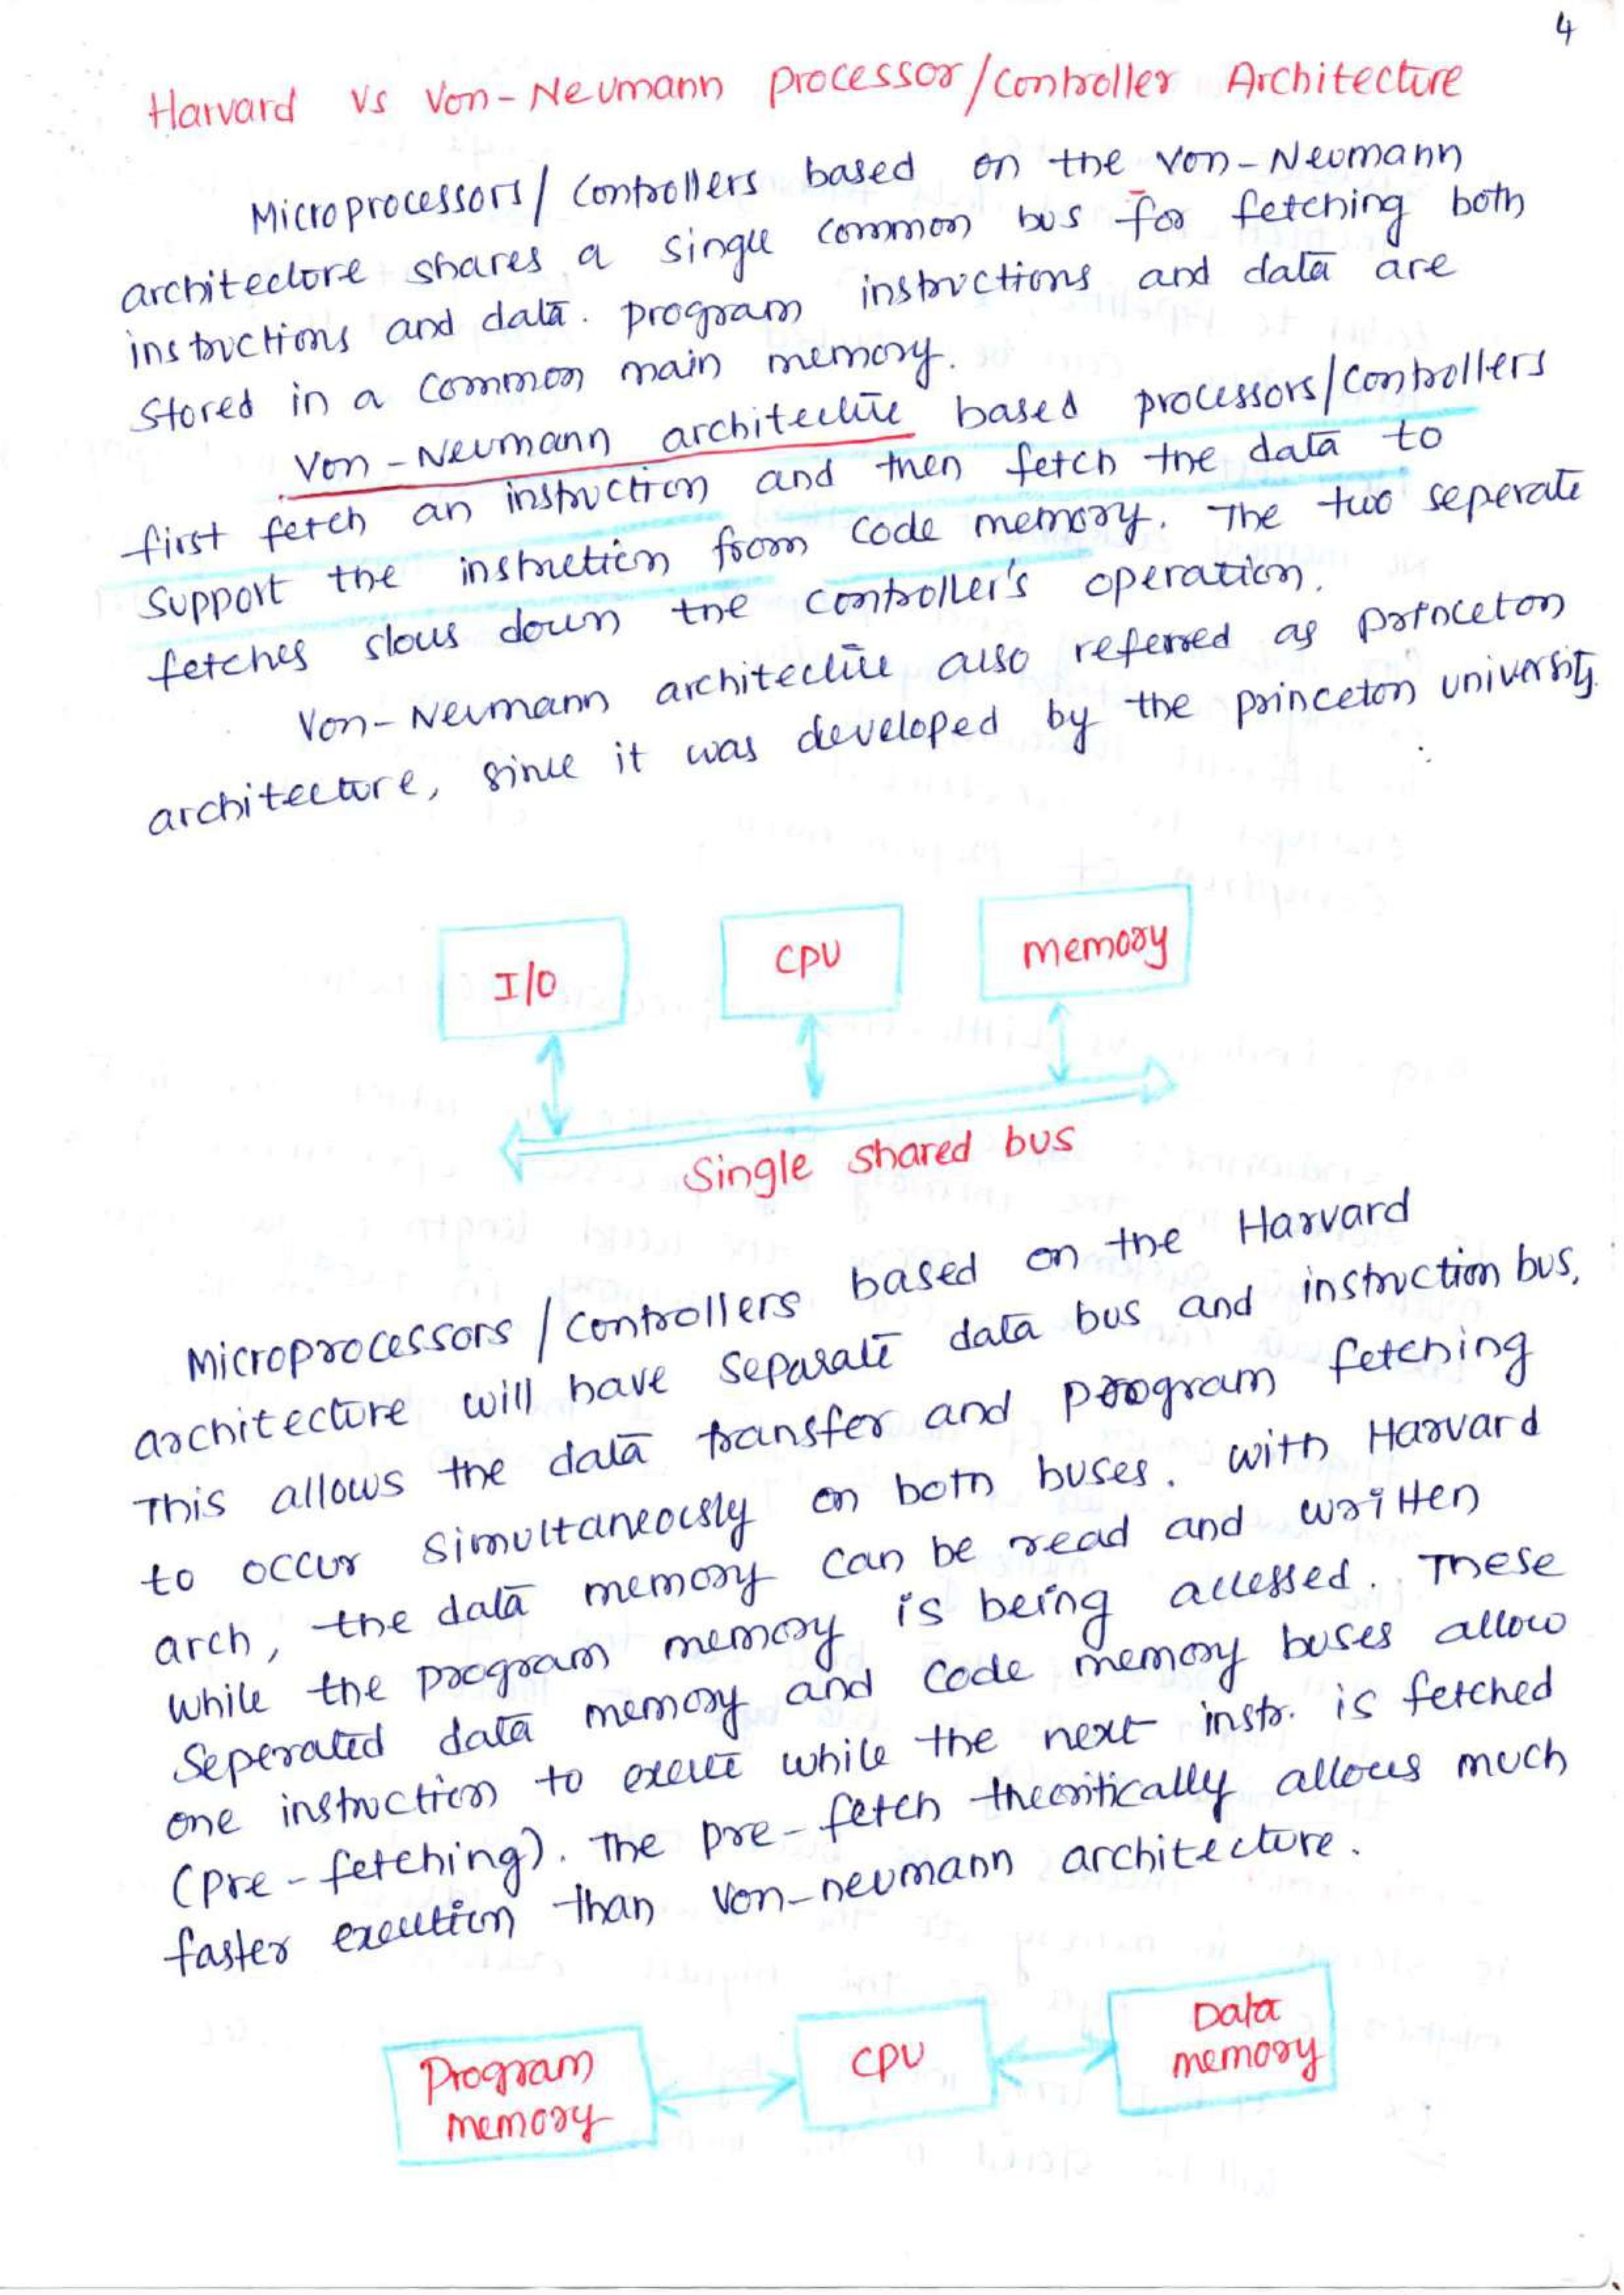 4
Harvard vs Von-Neumann processor/controller Architecture
Microprocessors/controllers based on the von-Neumann
architecture shares a single common bus for fetching both
instructions and data. program instructions and data are
stored in a common main memory.
Von-Neumann architecture based processors/controllers
first fetch an instruction and then fetch the data to
support the instruction from code memory. The two seperate
fetches slows down the controller's operation.
Von-Neumann architecture also referred as princeton
architecture, since it was developed by the princeton university.
I/O
CPU
memory
Single shared bus
Microprocessors/controllers based on the Harvard
architecture will have separate data bus and instruction bus.
This allows the data transfer and program fetching
to occur simultaneously on both buses. with Harvard
arch, the data memory can be read and written
while the program memory is being accessed. These
seperated data memory and code memory buses allow
one instruction to execute while the next instr. is fetched
(pre-fetching). The pre-fetch theoritically allows much
faster execution than von-neumann architecture.
Program
memory
CPU
Data
memory